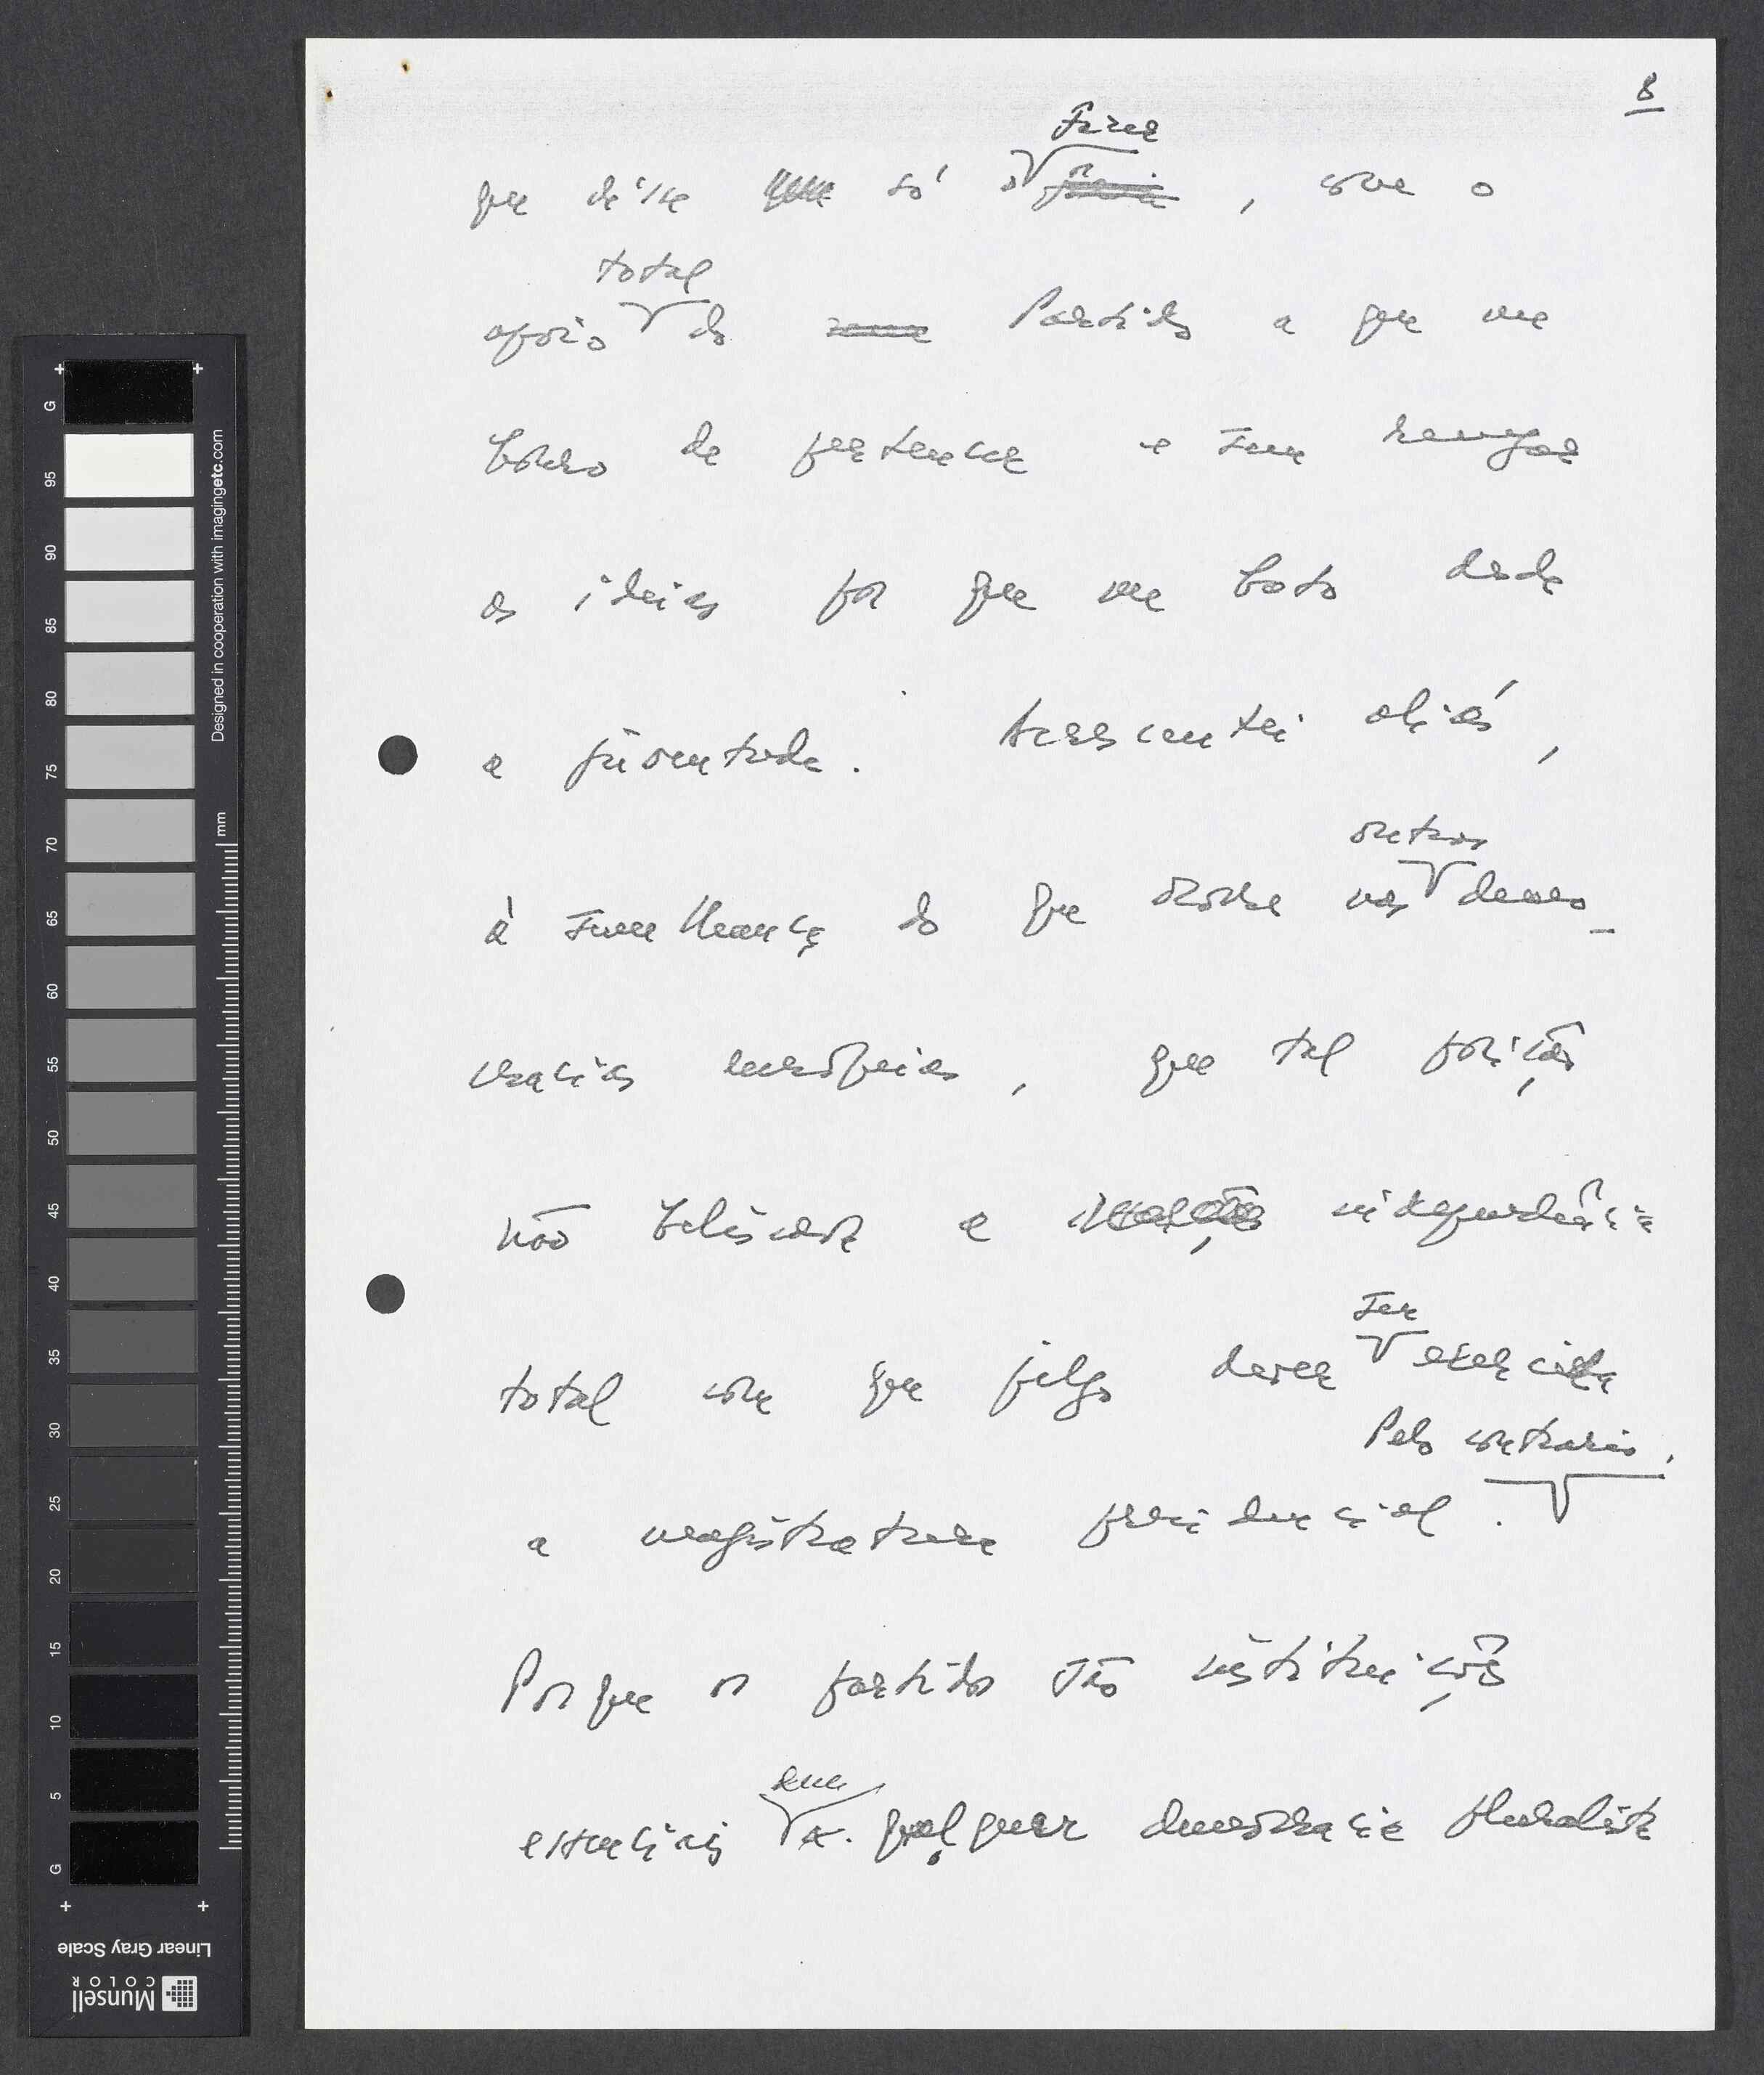 8
que disse que só o faria, com o
fazer
apoio do Partido a que me
total
honro de pertencer e sem renegar
as ideias por que me bato desde
a juventude. Acrescentei aliás,
à semelhança do que ocorre nas demo-
outras
cracias europeias, que tal posição
não beliscava a independência
total com que julgo dever exercida
ser
a magistratura presidencial.
Pelo contrário,
Porque os partidos são instituições
essenciais a qualquer democracia pluralista
em
Designed in cooperation with imagingetc.com
mm
G
95
90
85
80
75
70
65
60
55
50
45
40
35
30
25
20
15
10
5
G
Linear Gray Scale
Munsell
COLOR